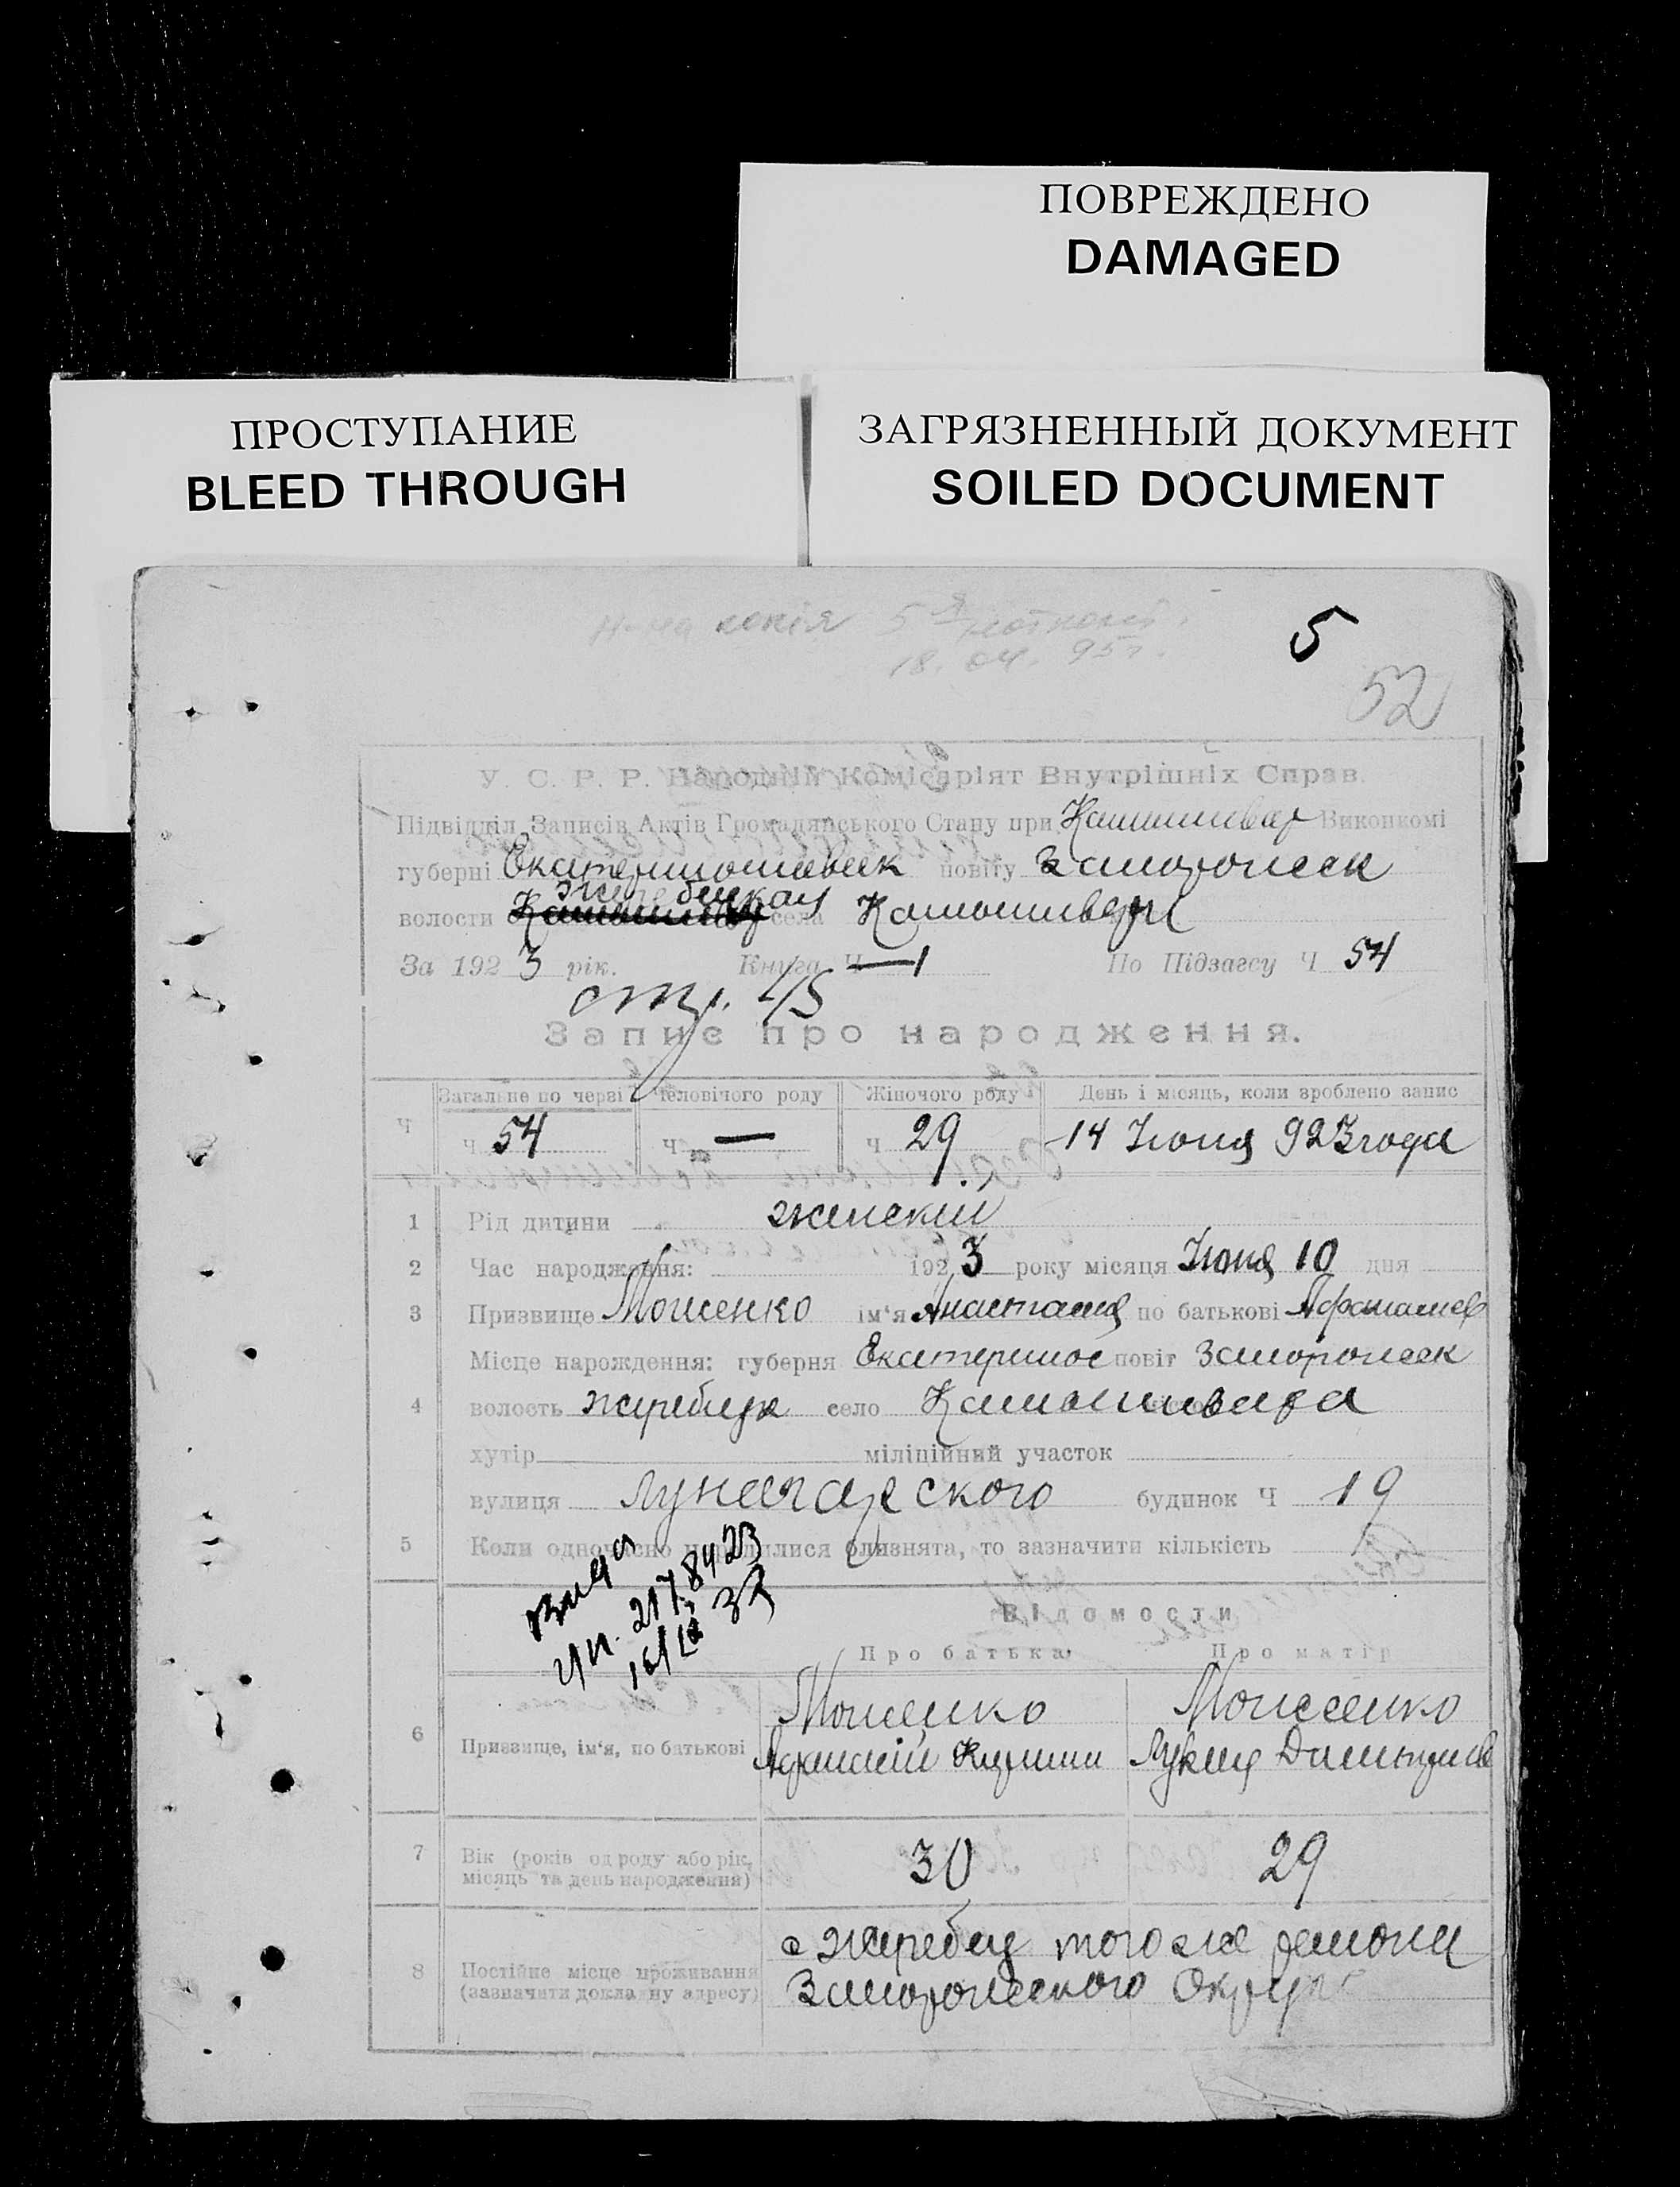 ПОВРЕЖДЕНО
DAMAGED
ПРОСТУПАНИЕ
BLEED THROUGH
ЗАГРЯЗНЕННЫЙ ДОКУМЕНТ
SOILED DOCUMENT
копія 5
18. 04. 95г.
5
52
У. С. Р. Р. Народній Комісаріят Внутрішніх Справ.
Підвідділ Записів Актів Громадянського Стану при Виконкомі
губерні Екатеринославск повіту Запорожск
волости села
За 1923 рік. Книга Ч 1 По Підзагсу Ч 54
стр. 45
Запис про народження.
Загальне по черві Человічого роду Жіночого роду День і місяць, коли зроблено запис
Ч ч 54 ч — ч 29 14 Июня 923 года
1 Рід дитини женский
2 Час народження: 1923 року місяця Июня 10 дня
3 Призвище Мошенко ім'я Анастасия по батькові Афанасиев
Місце нарождення: губерня Екатеринос повіт Запорожск
4 волость жеребецк село
хутір міліційний участок
вулиця Луначарского будинок Ч 19
5 Коли одночасно народилися близнята, то зазначити кількість
Відомости
Про батька Про матір
6 Призвище, ім'я, по батькові
Мошенко
Мошенко
7 Вік (років од роду або рік, місяць та день народження) 30 29
8 Постійне місце проживання (зазначити докладну адресу)
с жеребец того же
Запорожского Округа